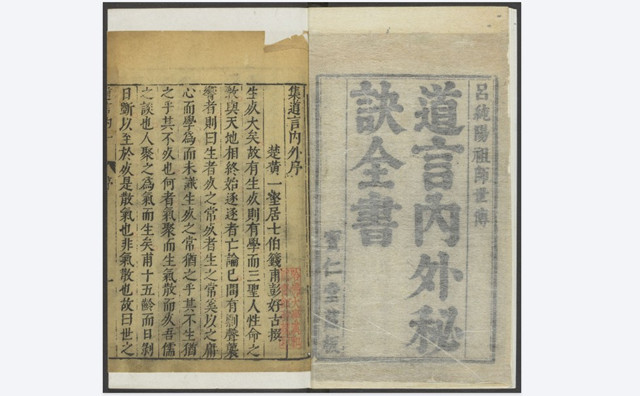 呂純陽祖師世傳
道言內外秘
訣全書
寶仁堂藏板
集道言內外序
楚黃一壑居士伯籛甫彭好古撰
生死大矣故有生死則有學而三聖人性命之
教與天地相終始逐逐者亡論已間有剽聲慕
響者則曰生者死之常死者生之常奚以之庸
心而學為而未識生死之常猶之乎其不生猶
之乎其不死也何者氣聚而生氣散而死吾儒
之談也人聚之為氣而生矣甫十五齡而日剝
日斲以至於死是散氣也非氣散也故曰世之